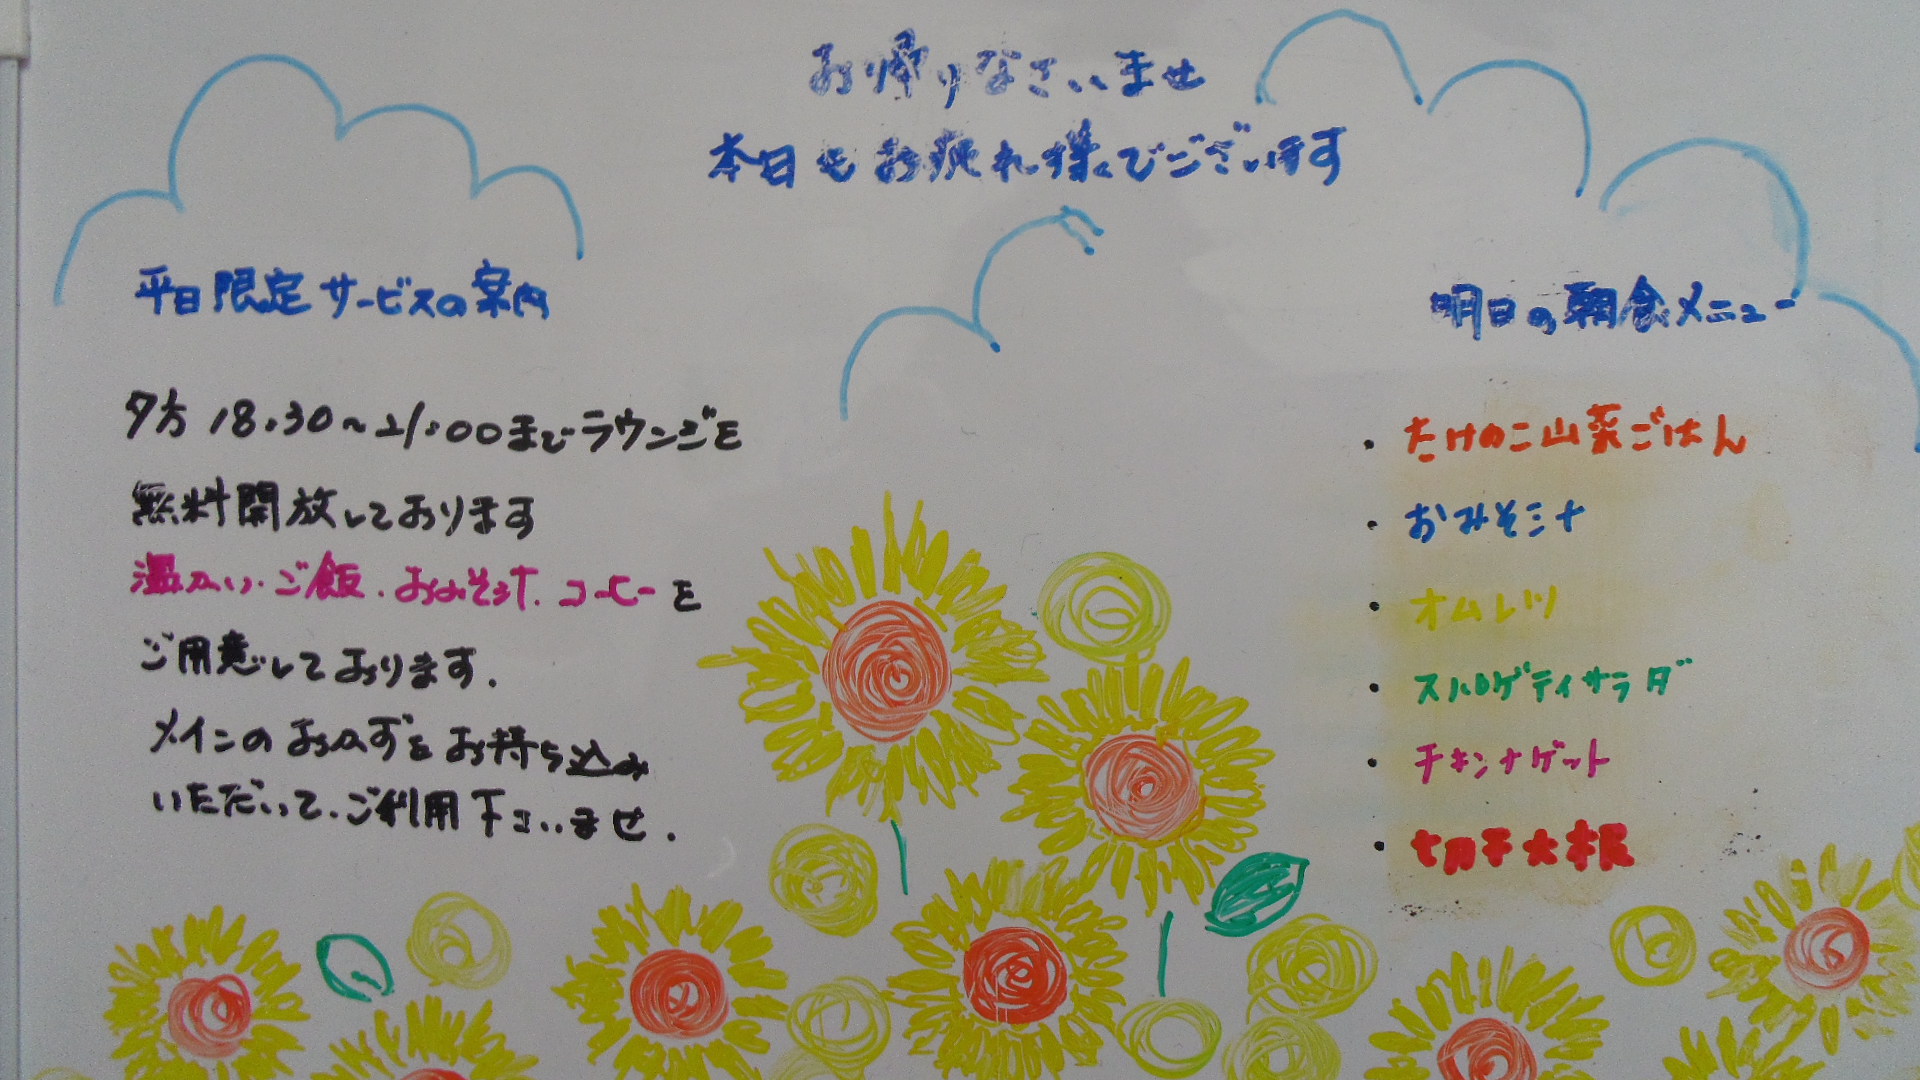 お帰りなさいませ
本日もお疲れ様でございます
平日限定サービスの案内
夕方18:30～21:00までラウンジを
無料開放しております
温かい・ご飯・おみそ汁・コーヒーを
ご用意しております.
メインのおかずをお持ち込み
いただいて、ご利用下さいませ.
明日の朝食メニュー
・たけのこ山菜ごはん
・おみそ汁
・オムレツ
・スパゲティサラダ
・チキンナゲット
・切干大根